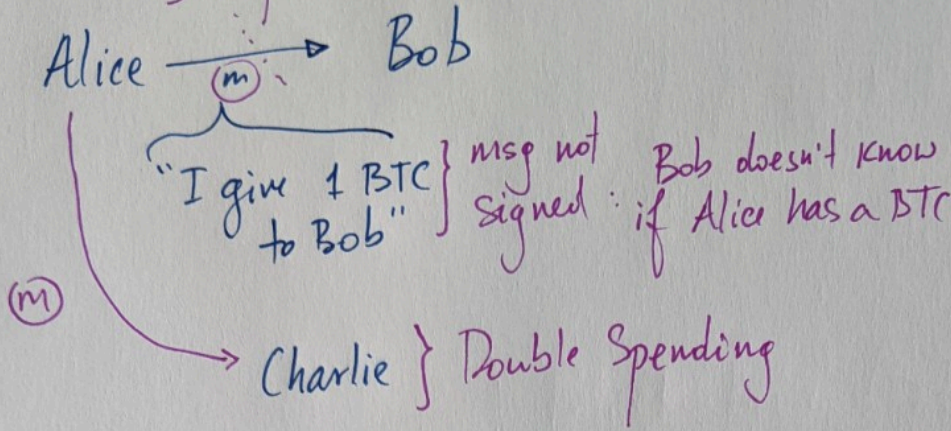 Alice Bob
m
"I give 1 BTC to Bob" } msg not signed : Bob doesn't know if Alice has a BTC
m
Charlie } Double Spending